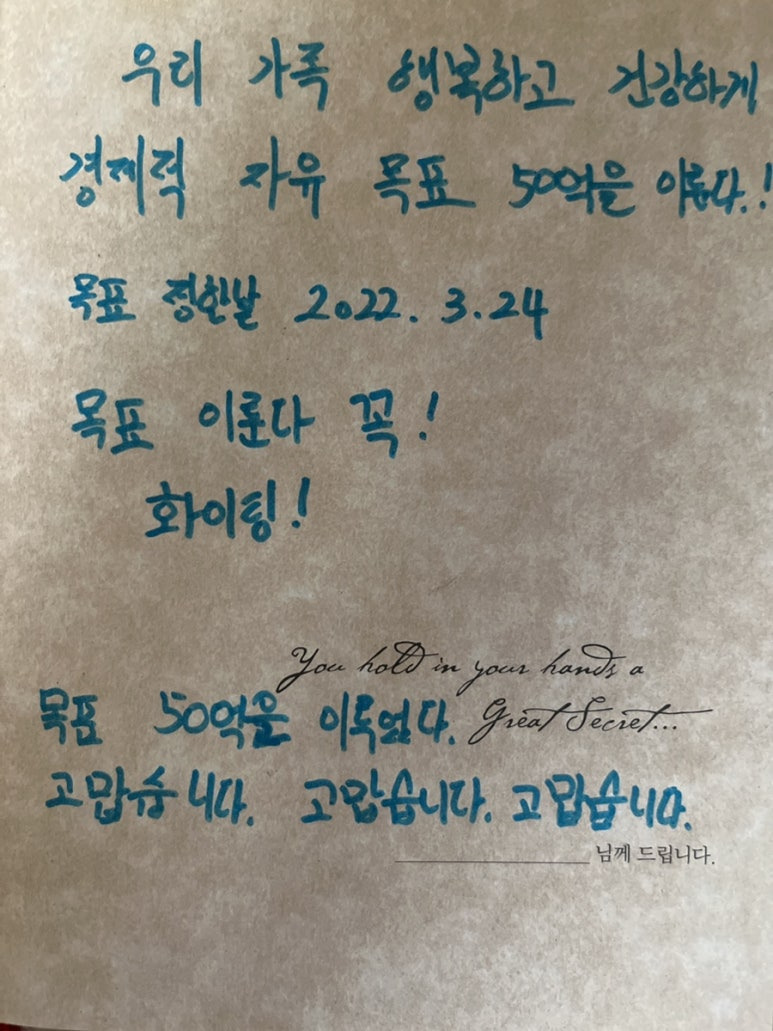 우리 가족 행복하고 건강하게
경제적 자유 목표 50억을 이룬다.!
목표 정한날 2022. 3.24
목표 이룬다 꼭!
화이팅!
You hold in your hands a
Great Secret...
목표 50억을 이룩었다.
고맙습니다. 고맙습니다. 고맙습니다.
님께 드립니다.